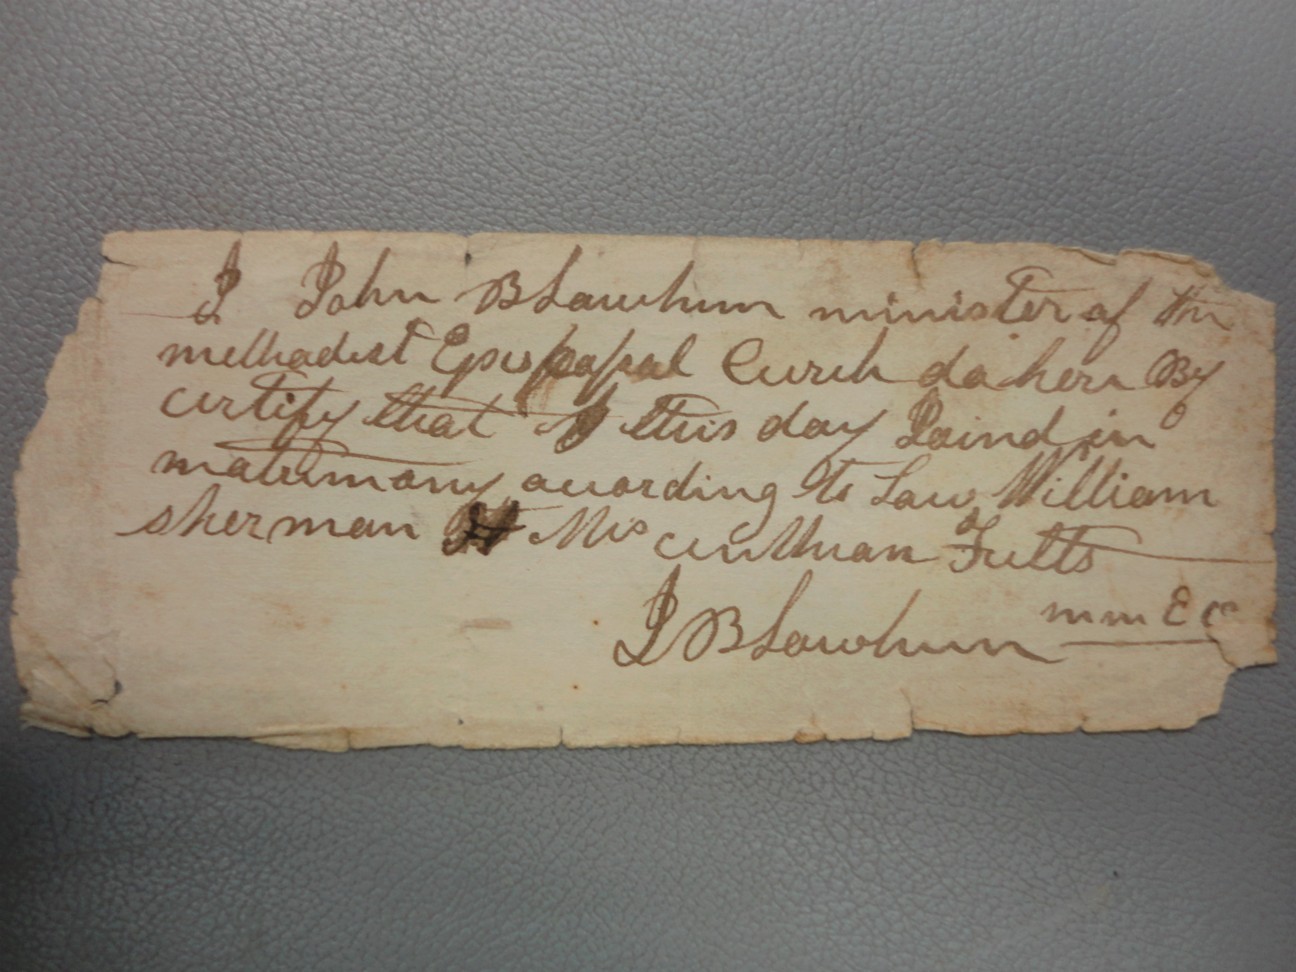 I John B Lawhun minister of the
methadist Epispopal Curch do here By
certify that I this day Joind in
matrimony acording to Law William
sherman & Mis Fults
J B Lawhun m m E C